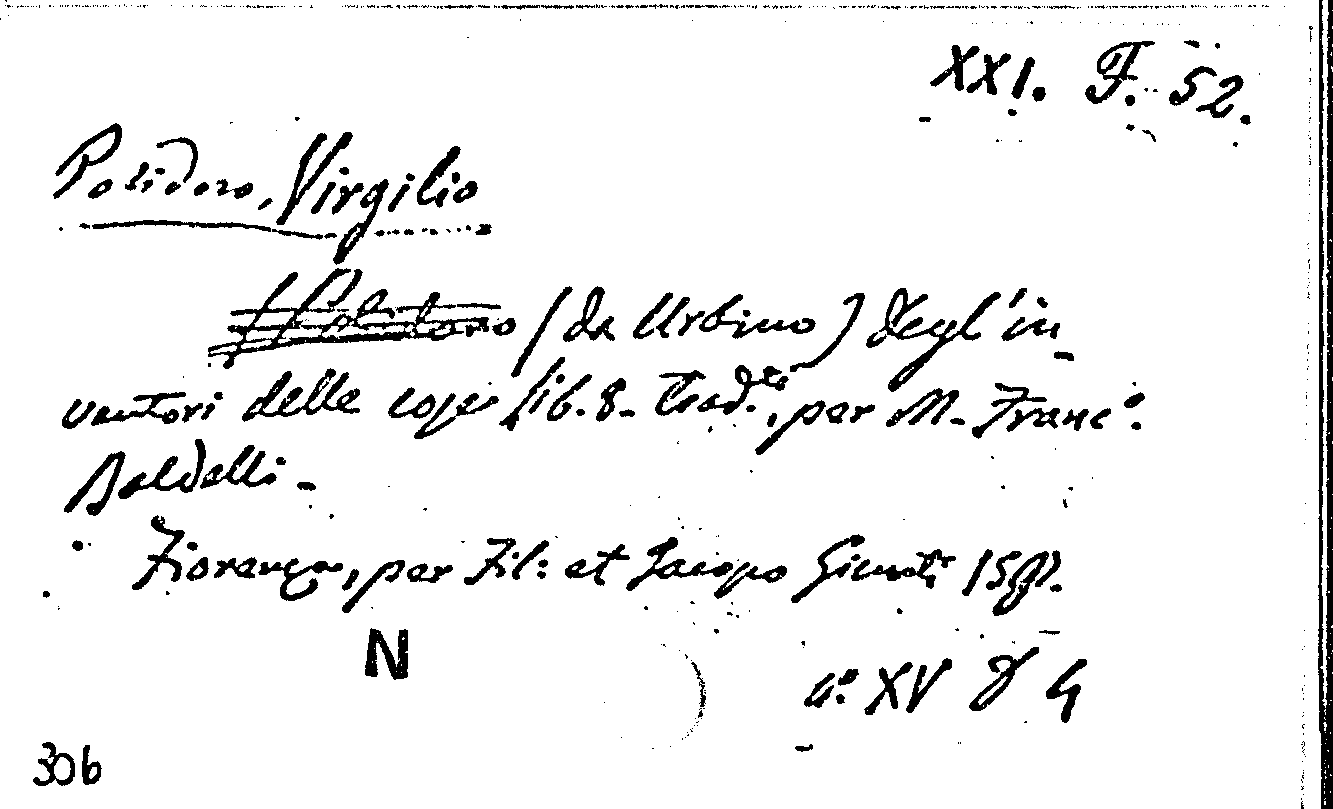 XXI. F. 52.
Polidoro, Virgilio
(da Urbino) degl'in-
ventori delle cose lib. 8. Trad.ti, per M. Franc.o
Baldelli -
Fiorenza, per Fil: et Jacopo Giunti
N
4.° XV 4
306